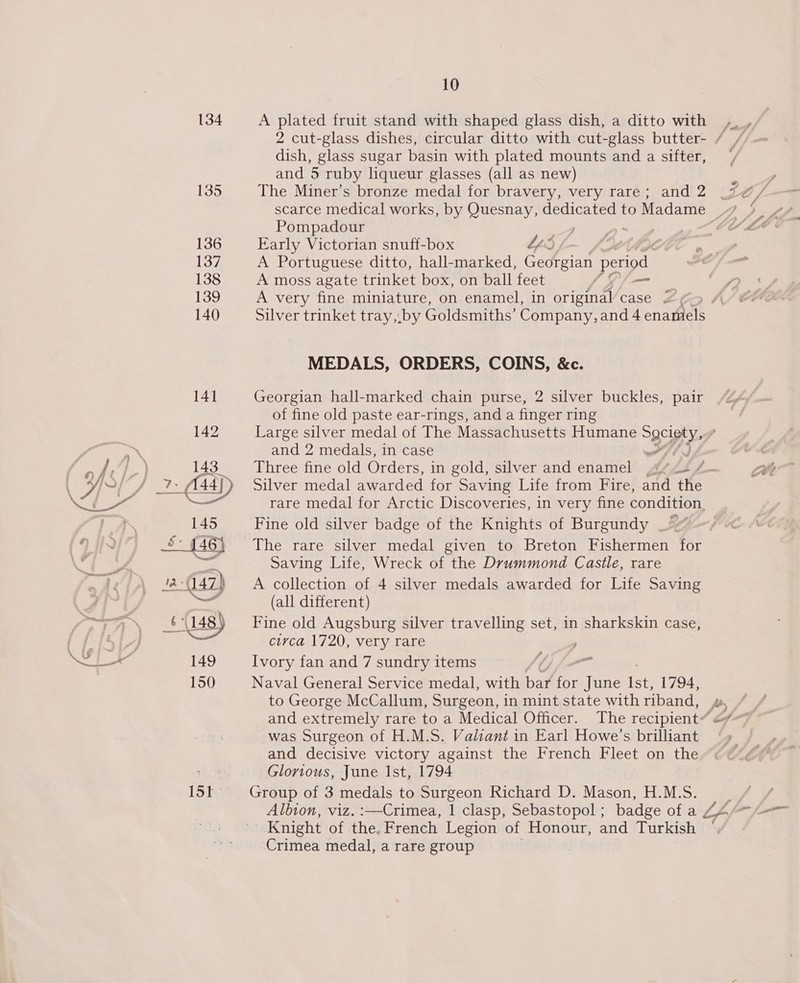 10
134 A plated fruit stand with shaped glass dish, a ditto with
2 cut-glass dishes, circular ditto with cut-glass butter-
dish, glass sugar basin with plated mounts and a sifter,
and 5 ruby liqueur glasses (all as new)
135 The Miner's bronze medal for bravery, very rare; and 2
scarce medical works, by Quesnay, dedicated to Madame
Pompadour
136 Early Victorian snuff-box
137 A Portuguese ditto, hall-marked, Georgian period
138 A moss agate trinket box, on ball feet
139 A very fine miniature, on enamel, in original case
140 Silver trinket tray, by Goldsmiths' Company, and 4 enamels
MEDALS, ORDERS, COINS, &c.
141 Georgian hall-marked chain purse, 2 silver buckles, pair
of fine old paste ear-rings, and a finger ring
142 Large silver medal of The Massachusetts Humane Society,
and 2 medals, in case
143 Three fine old Orders, in gold, silver and enamel
144 Silver medal awarded for Saving Life from Fire, and the
rare medal for Arctic Discoveries, in very fine condition
145 Fine old silver badge of the Knights of Burgundy
146 The rare silver medal given to Breton Fishermen for
Saving Life, Wreck of the Drummond Castle, rare
147 A collection of 4 silver medals awarded for Life Saving
(all different)
148 Fine old Augsburg silver travelling set, in sharkskin case,
circa 1720, very rare
149 Ivory fan and 7 sundry items
150 Naval General Service medal, with bar for June 1st, 1794,
to George McCallum, Surgeon, in mint state with riband,
and extremely rare to a Medical Officer. The recipient
was Surgeon of H.M.S. Valiant in Earl Howe's brilliant
and decisive victory against the French Fleet on the
Glorious, June 1st, 1794
151 Group of 3 medals to Surgeon Richard D. Mason, H.M.S.
Albion, viz. :—Crimea, 1 clasp, Sebastopol; badge of a
Knight of the French Legion of Honour, and Turkish
Crimea medal, a rare group